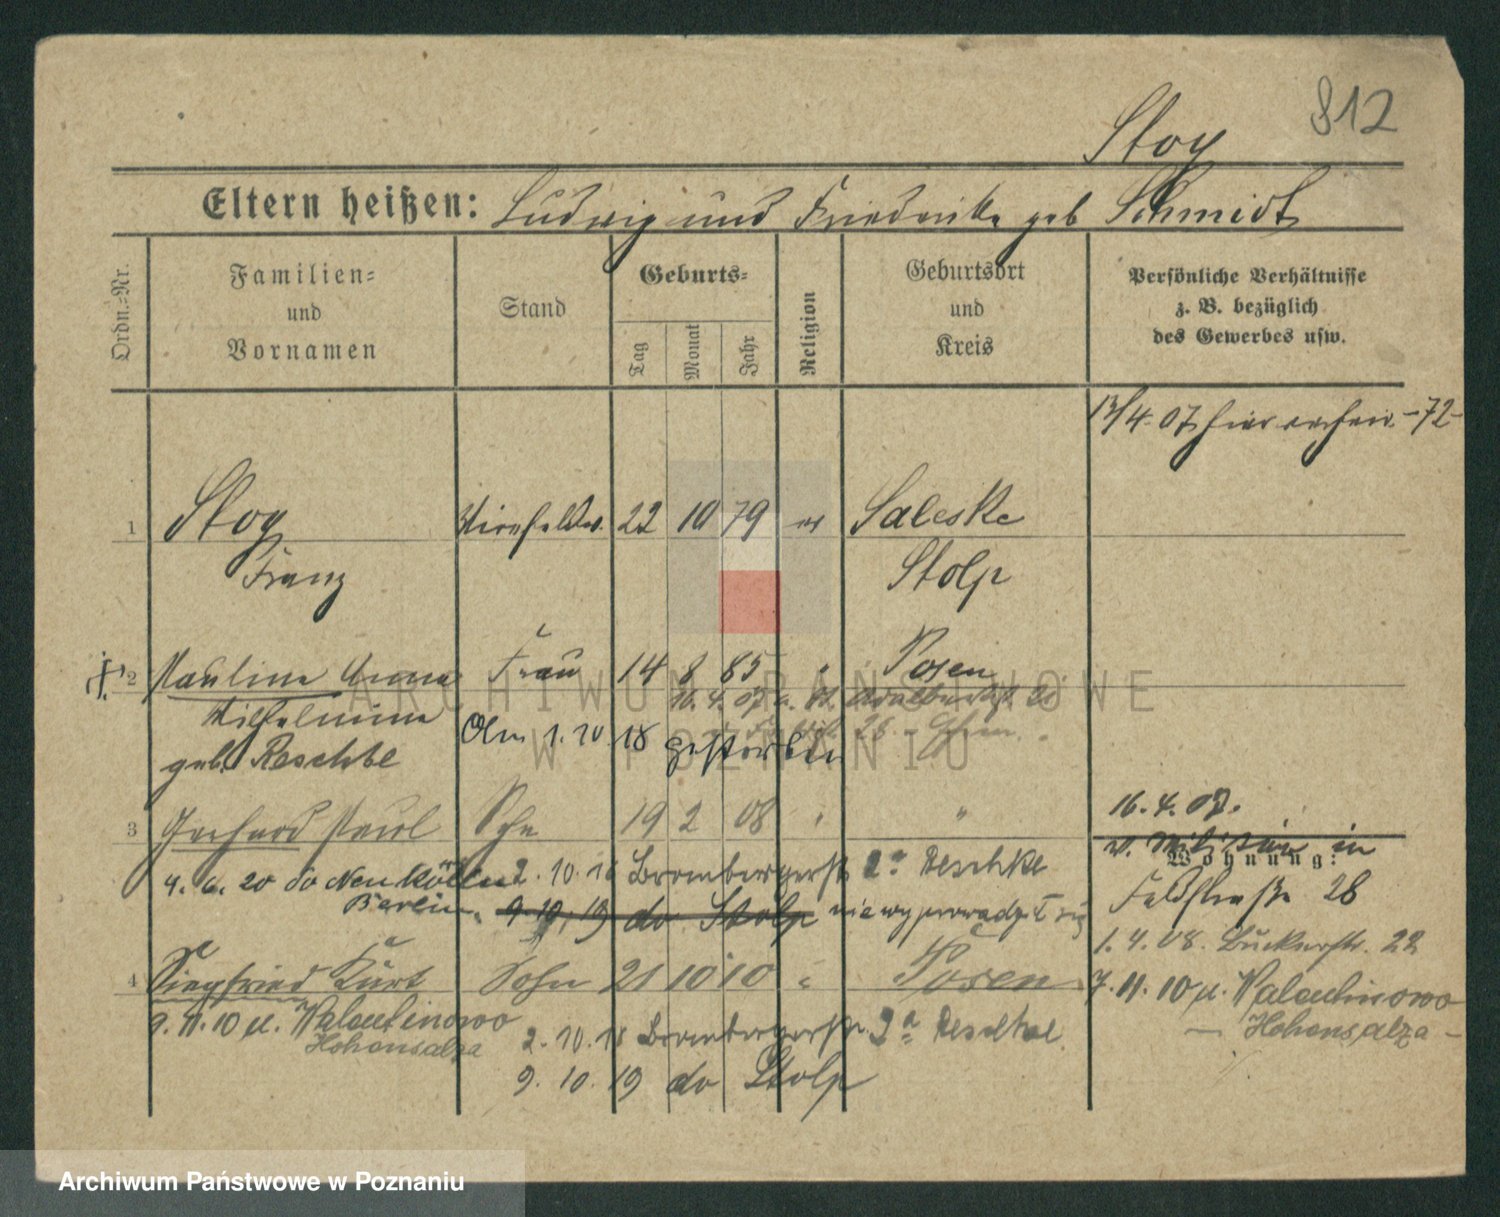 812
Stoy
Eltern heißen: Ludwig und Friederike geb Schmidt
Ordn.-Nr.
Familien-
und
Vornamen
Stand
Geburts-
Tag
Monat
Jahr
Religion
Geburtsort
und
Kreis
Persönliche Verhältnisse
z. B. bezüglich
des Gewerbes usw.
13/4. 07 hier -72-
1 Stoy 22 10 79 ev Saleske
Franz Stolp
2 Pauline Anna Frau 14 8 85 " Posen
16. 4. 07
Wilhelmine
Am 1. 10. 18 gestorben
geb. Reschke
3 Gerhard Paul Sohn 19 2 08 " "
16. 4. 07.
v. Militär in
Wohnung:
4. 6. 20 do Neukölln
Berlin
2. 10. 18 Brombergerstr 2a Reschke
Feldstraße 28
9. 10. 19 do Stolp nie wyprowadził się
1. 4. 08. 22
4 Siegfried Kurt Sohn 21 10 10 " Posen
7. 11. 10 n. Walentinowo
- Hohensalza -
9. 11. 10 n. Walentinowo
Hohensalza
2. 10. 18 Brombergerstr. 2a Reschke
9. 10. 19 do Stolp
ARCHIWUM PAŃSTWOWE
W POZNANIU
Archiwum Państwowe w Poznaniu